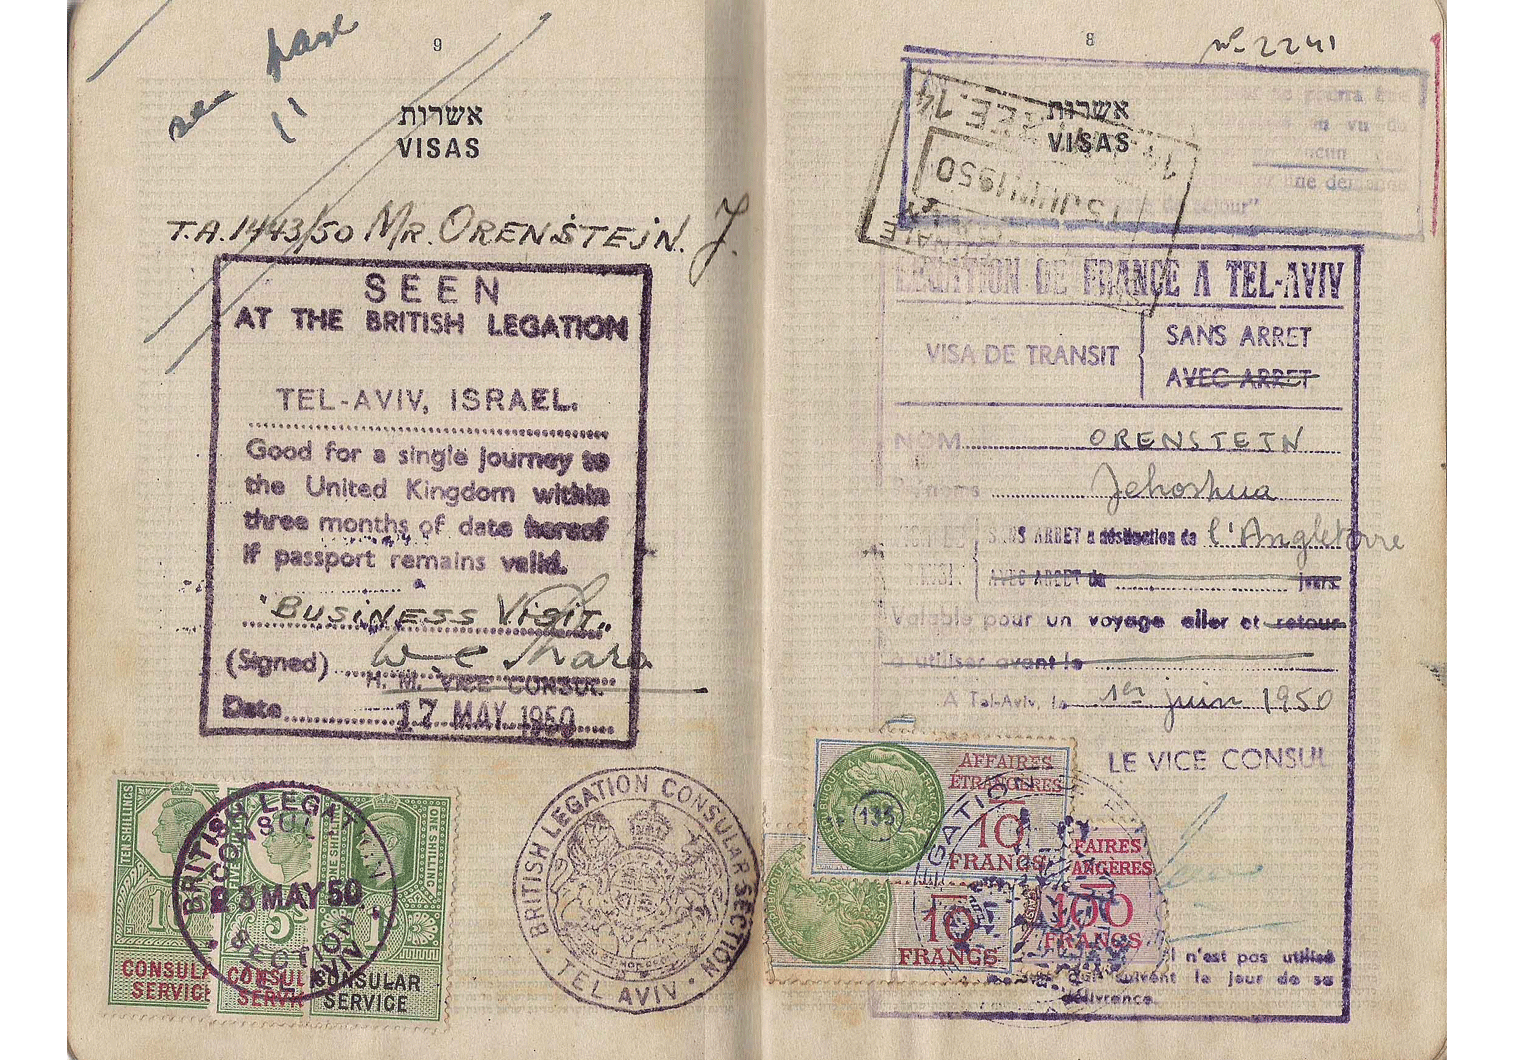 9
see page
11
אשרות
VISAS
T.A. 1443/50 MR. ORENSTEIN. J.
SEEN
AT THE BRITISH LEGATION
TEL-AVIV, ISRAEL.
Good for a single journey to
the United Kingdom within
three months of date hereof
if passport remains valid.
BUSINESS VISIT.
(Signed)
H. M. VICE CONSUL.
Date 17 MAY 1950
TEN SHILLINGS
ONE SHILLING
10
5
1
CONSULAR
SERVICE
CONSUL
SERVI
CONSULAR
SERVICE
BRITISH LEGATION
CONSUL
23 MAY 50
SECTION
TEL AVIV
BRITISH LEGATION CONSULAR SECTION
· TEL AVIV ·
8
No 2241
אשרות
VISAS
pourra être
vu de
aucun
une demande
de retour"
15 JUIN 1950
LEGATION DE FRANCE A TEL-AVIV
VISA DE TRANSIT
SANS ARRET
AVEC ARRET
NOM ORENSTEIN
Prénoms Jehoshua
SANS ARRET à destination de l'Angleterre
AVEC ARRET de jours.
Valable pour un voyage aller et retour
à utiliser avant le
A Tel-Aviv, le 1er juin 1950
LE VICE CONSUL
AFFAIRES
ÉTRANGÈRES
135
10
FRANCS
10
FRANCS
FAIRES
ANGÈRES
100
FRANCS
il n'est pas utilisé
qui suivent le jour de sa
délivrance.